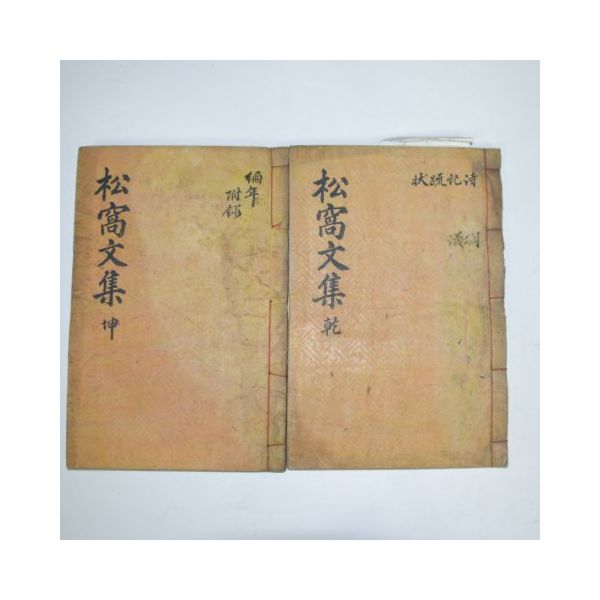 松窩文集 乾
詩記疏狀
松窩文集 坤
編年
附錄